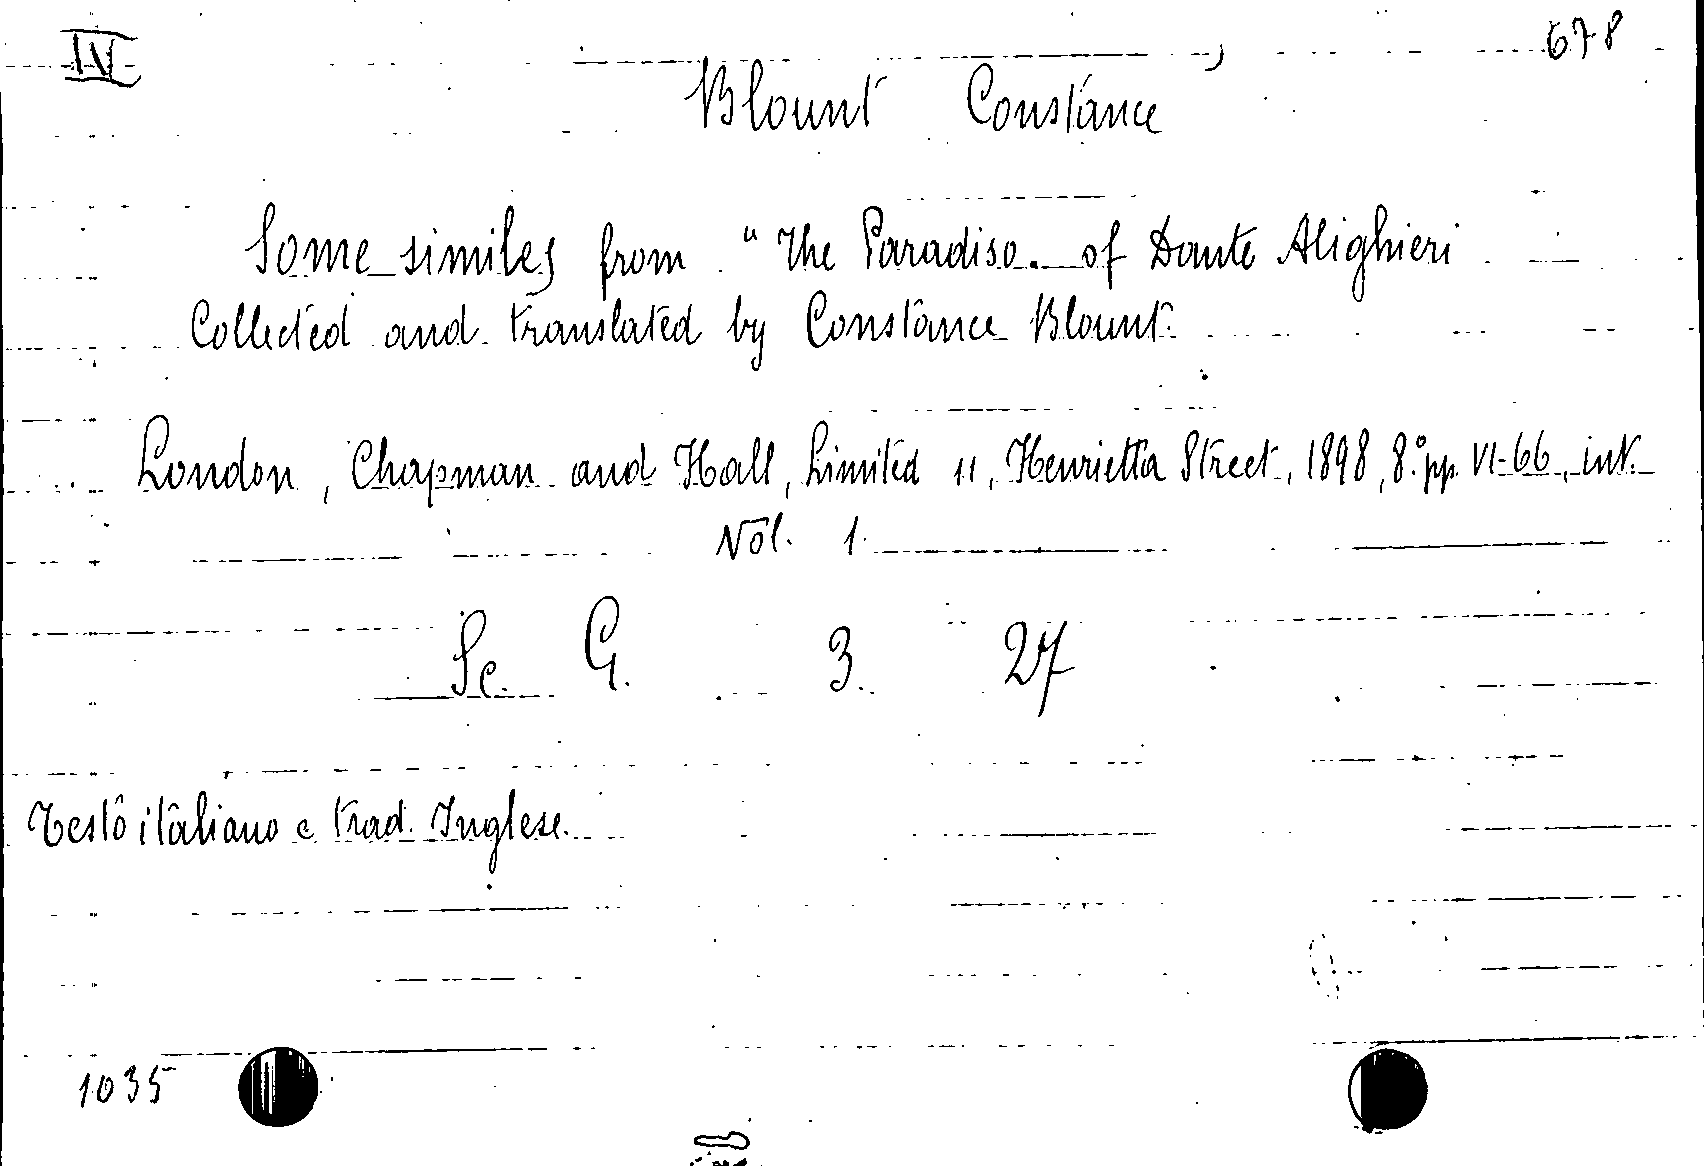 IV 678
Blount Constance
Some similes from "The Paradiso. of Dante Alighieri
Collected and translated by Constance Blount.
London, Chapman and Hall, Limited 11, Henrietta Street, 1898, 8.° pp. VI-66, int.
Vol. 1.
Sc. G. 3. 27
Testo italiano e trad. Inglese.
1035